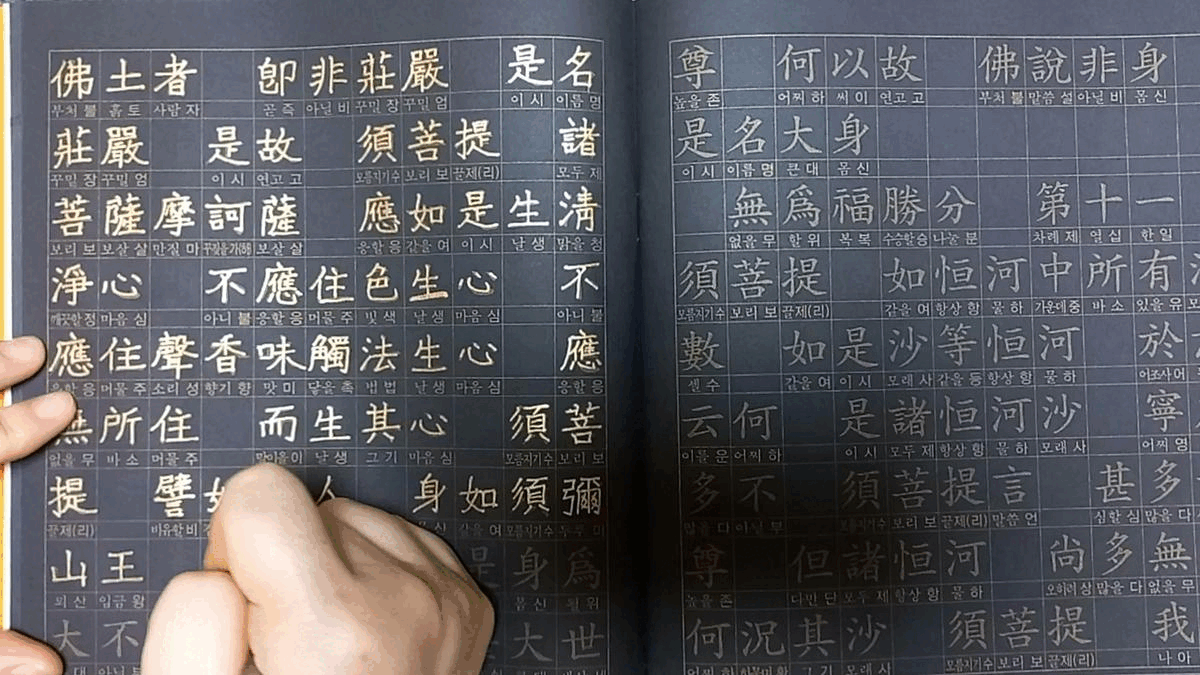 佛土者 卽非莊嚴 是名
부처 불 흙 토 사람 자 곧 즉 아닐 비 꾸밀 장 꾸밀 엄 이 시 이름 명
莊嚴 是故 須菩提 諸
꾸밀 장 꾸밀 엄 이 시 연고 고 모름지기 수 보리 보 끌제(리) 모두 제
菩薩摩訶薩 應如是生淸
보리 보 보살 살 만질 마 꾸짖을 가(하) 보살 살 응할 응 같을 여 이 시 날 생 맑을 청
淨心 不應住色生心 不
깨끗할 정 마음 심 아니 불 응할 응 머물 주 빛 색 날 생 마음 심 아니 불
應住聲香味觸法生心 應
응할 응 머물 주 소리 성 향기 향 맛 미 닿을 촉 법 법 날 생 마음 심 응할 응
無所住 而生其心 須菩
없을 무 바 소 머물 주 말이을 이 날 생 그 기 마음 심 모름지기 수 보리 보
提 譬 身如須彌
끌제(리) 비유할 비 몸 신 같을 여 모름지기 수 두루 미
山王 是身爲
뫼 산 임금 왕 몸 신 될 위
大不 大世
尊 何以故 佛說非身
높을 존 어찌 하 써 이 연고 고 부처 불 말씀 설 아닐 비 몸 신
是名大身
이 시 이름 명 큰 대 몸 신
無爲福勝分 第十一
없을 무 할 위 복 복 수승할 승 나눌 분 차례 제 열 십 한 일
須菩提 如恒河中所有
모름지기 수 보리 보 끌제(리) 같을 여 항상 항 물 하 가운데 중 바 소 있을 유
數 如是沙等恒河 於
셀 수 같을 여 이 시 모래 사 같을 등 항상 항 물 하 어조사 어
云何 是諸恒河沙 寧
이를 운 어찌 하 이 시 모두 제 항상 항 물 하 모래 사 어찌 영
多不 須菩提言 甚多
많을 다 아닐 부 모름지기 수 보리 보 끌제(리) 말씀 언 심할 심 많을 다
尊 但諸恒河 尙多無
높을 존 다만 단 모두 제 항상 항 물 하 오히려 상 많을 다 없을 무
何況其沙 須菩提 我
그 기 모래 사 모름지기 수 보리 보 끌제(리) 나 아